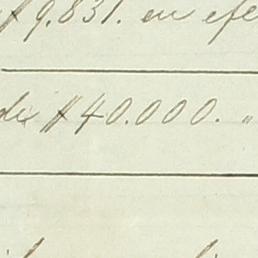 $9.831. en efe
de $40.000. "